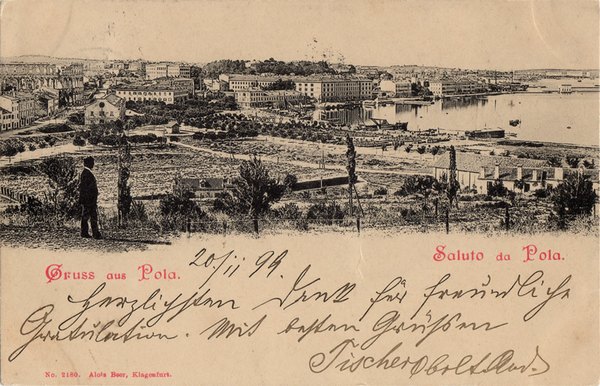 Gruss aus Pola.
Saluto da Pola.
20/II 99
Herzlichsten Dank für freundliche
Gratulation. Mit besten Grüssen
Tischer
No. 2180. Alois Beer, Klagenfurt.